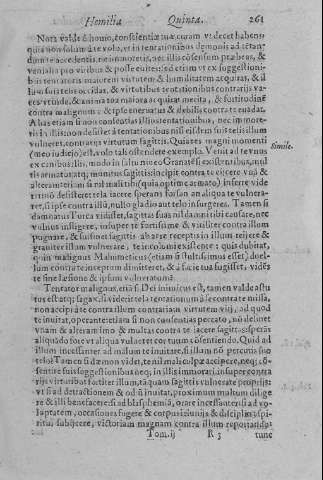 Homilia Quinta. 261
Nota valde & homo, conscientiæ tuæ curam vt decet habens:
quia non solum à te volo, vt in tentationibus demonis ad tetan-
dum te accedentis, ne immoreris, nec illis cōsensum præbeas, &
venialia pro viribus & posse euites: sed etiam vt ex suggestioni-
bus tentatoris maiorem virtutem & humilitatem acquiras, & il-
lum suis telis occidas, & virtutibus tentationibus contrarijs va-
ces, vnde, & anima tua maiora acquirat merita, & fortitudinē
contra malignum: & ipse eneruatus & debilis contra te euadas.
A has etiam si non consentias illius tentationes, nec immore-
ris in illis: non desistet à tentationibus nisi eisdem suis telis illum
vulneret, contraria virtutum sagittis. Quia res magni momenti
(meo iudicio) est, volo tali ostendere exemplo. Venit ad te vnus
Simile.
ex canibus illis, modo in saltu niueo Granatēsi existentibus, mul
tis armatus atq; munitus sagittis: incipit contra te eijcere vnā &
alteram: etiam si nil mali tibi (quia optimè armato) inferre vide
rit: nō desisteret tela iacere sperans forsan an aliqua te vulnera-
ret, si ipse contra illū, nullo gladio aut telo insurgeres. Tamen si
damnatus Turca vidisset, sagittas suas nil damni tibi causare, nec
vulnus infligere, insuper te fortissimè & viriliter contra illum
pugnare, & suismet sagittis ab aere receptis in illum reijcere &
grauiter illum vulnerare, te incolumi existente: quis dubitat,
quin malignus Mahumeticus (etiam si stultissimus esset) duel-
lum contra te inceptum dimitteret, & à facie tua fugisset, vidēs
te sine læsione & ipsum vulneratum?
Tentator malignus, etiā si Dei inimicus est, tamen valde astu
tus est atq; sagax, si viderit tela tentationum à se contra te missa,
non accipi à te contra illum contrariam virtutem vti, ad quod
te inuitat, operante: etiam si non consentias peccato, nō desinet
vnam & alteram imò & multas contra te iacere sagittas: sperās
aliquādo forte vt aliqua vulneret cor tuum cōsentiendo. Quid ad
illum incessanter ad malum te inuitare, si illum nō percutis suo
telo? Tamen si dæmon videt, te nil mali in culpæ accipere, neq; cō-
sentire suis suggestionibus neq; in illis immorari, insuper contra
rijs virtutibus fortiter illum, tā quam sagittis vulnerare proprijs:
vt si ad detractionem & odiū inuitat, proximum multum dilige
re & illi benefacere: si ad blasphemiā, orare incessanter: si ad vo-
luptatem, occasiones fugere & corpus ieiunijs & disciplinis spi-
ritui, subijcere, victoriam magnam contra illum reportando:
Tom.ij R 3 tunc